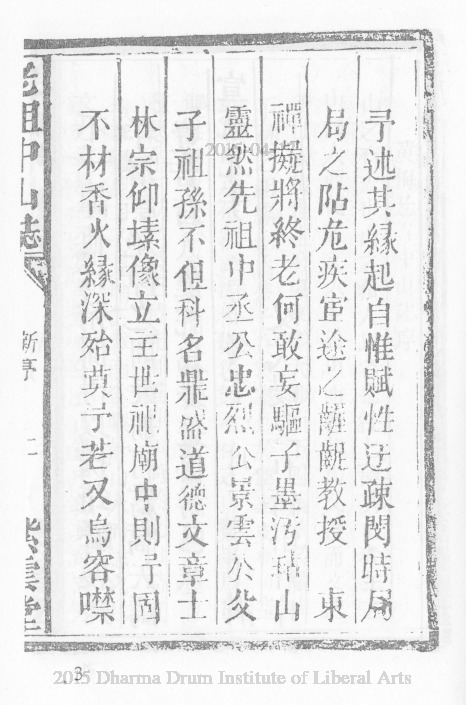 予述其緣起自惟賦性迂疎閔時局
局之阽危疾宦途之齷齪教授 東
禪擬將終老何敢妄驅子墨汚瑋山
靈然先祖中丞公忠烈公景雲公父
子祖孫不但科名鼎盛道德文章士
林宗仰塑像立主世祀廟中則予固
不材香火緣深殆莫予若又烏容噤
老祖中山誌
新序
二
紫雲堂
3
2015 Dharma Drum Institute of Liberal Arts